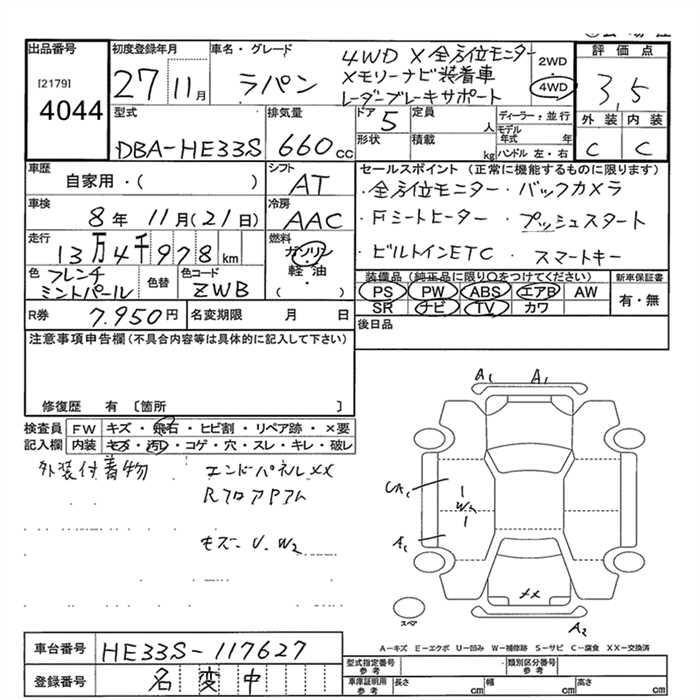 出品番号
[2179]
4044
初度登録年月
27 11月
車名・グレード
ラパン
4WD X 全方位モニター
メモリーナビ装着車
レーダーブレーキサポート
2WD
4WD
評価点
3,5
外装 内装
C C
型式
DBA-HE33S
排気量
660cc
ドア 5
形状
定員 人
積載 kg
ディーラー・並行
モデル年式 年
ハンドル 左・右
車歴
自家用・( )
シフト
AT
車検
8年 11月(21日)
冷房
AAC
走行
13万4千978km
燃料
ガソリン
軽油
( )
色 フレンチミントパール
色替
色コード
ZWB
R券 7.950円
名変期限 月 日
セールスポイント (正常に機能するものに限ります)
・全方位モニター ・バックカメラ
・Fシートヒーター ・プッシュスタート
・ビルトインETC ・スマートキー
装備品 (純正品に限り○をつけてください)
PS PW ABS エアB AW
SR ナビ TV カワ
新車保証書
有・無
後日品
注意事項申告欄(不具合内容等は具体的に記入して下さい)
修復歴 有 〔箇所 〕
検査員記入欄
FW キズ・飛石・ヒビ割・リペア跡・×要
内装 キズ・汚れ・コゲ・穴・スレ・キレ・破レ
外装付着物
エンドパネルXX
RフロアPアム
キズー U. W2
A1 A1
UA1
W2
A1
XX
A2
スペア
A-キズ E-エクボ U-凹み W-補修跡 S-サビ C-腐食 XX-交換済
車台番号 HE33S-117627
登録番号 名変中
型式指定番号 参考
類別区分番号 参考
車庫証明用 参考
長さ cm 幅 cm 高さ cm